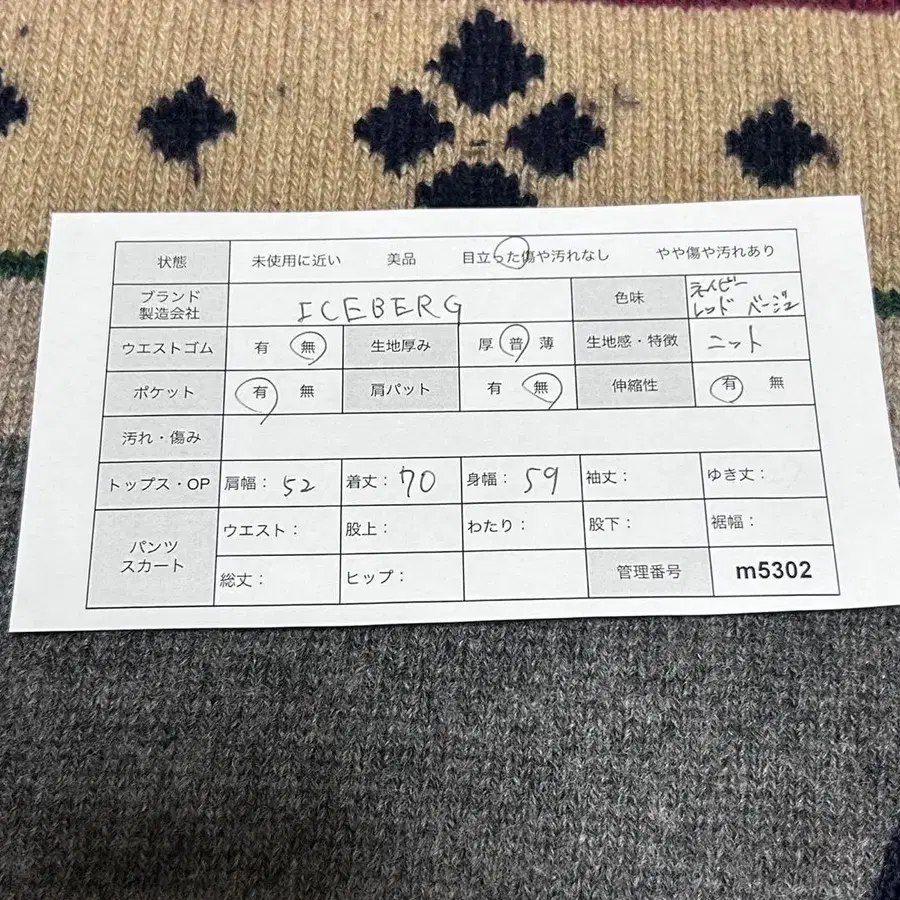 状態 未使用に近い 美品 目立った傷や汚れなし やや傷や汚れあり
ブランド
製造会社 ICEBERG 色味 ネイビー
レッド ベージュ
ウエストゴム 有 無 生地厚み 厚 普 薄 生地感・特徴 ニット
ポケット 有 無 肩パット 有 無 伸縮性 有 無
汚れ・傷み
トップス・OP 肩幅： 52 着丈： 70 身幅： 59 袖丈： ゆき丈：
パンツ
スカート
ウエスト： 股上： わたり： 股下： 裾幅：
総丈： ヒップ： 管理番号 m5302